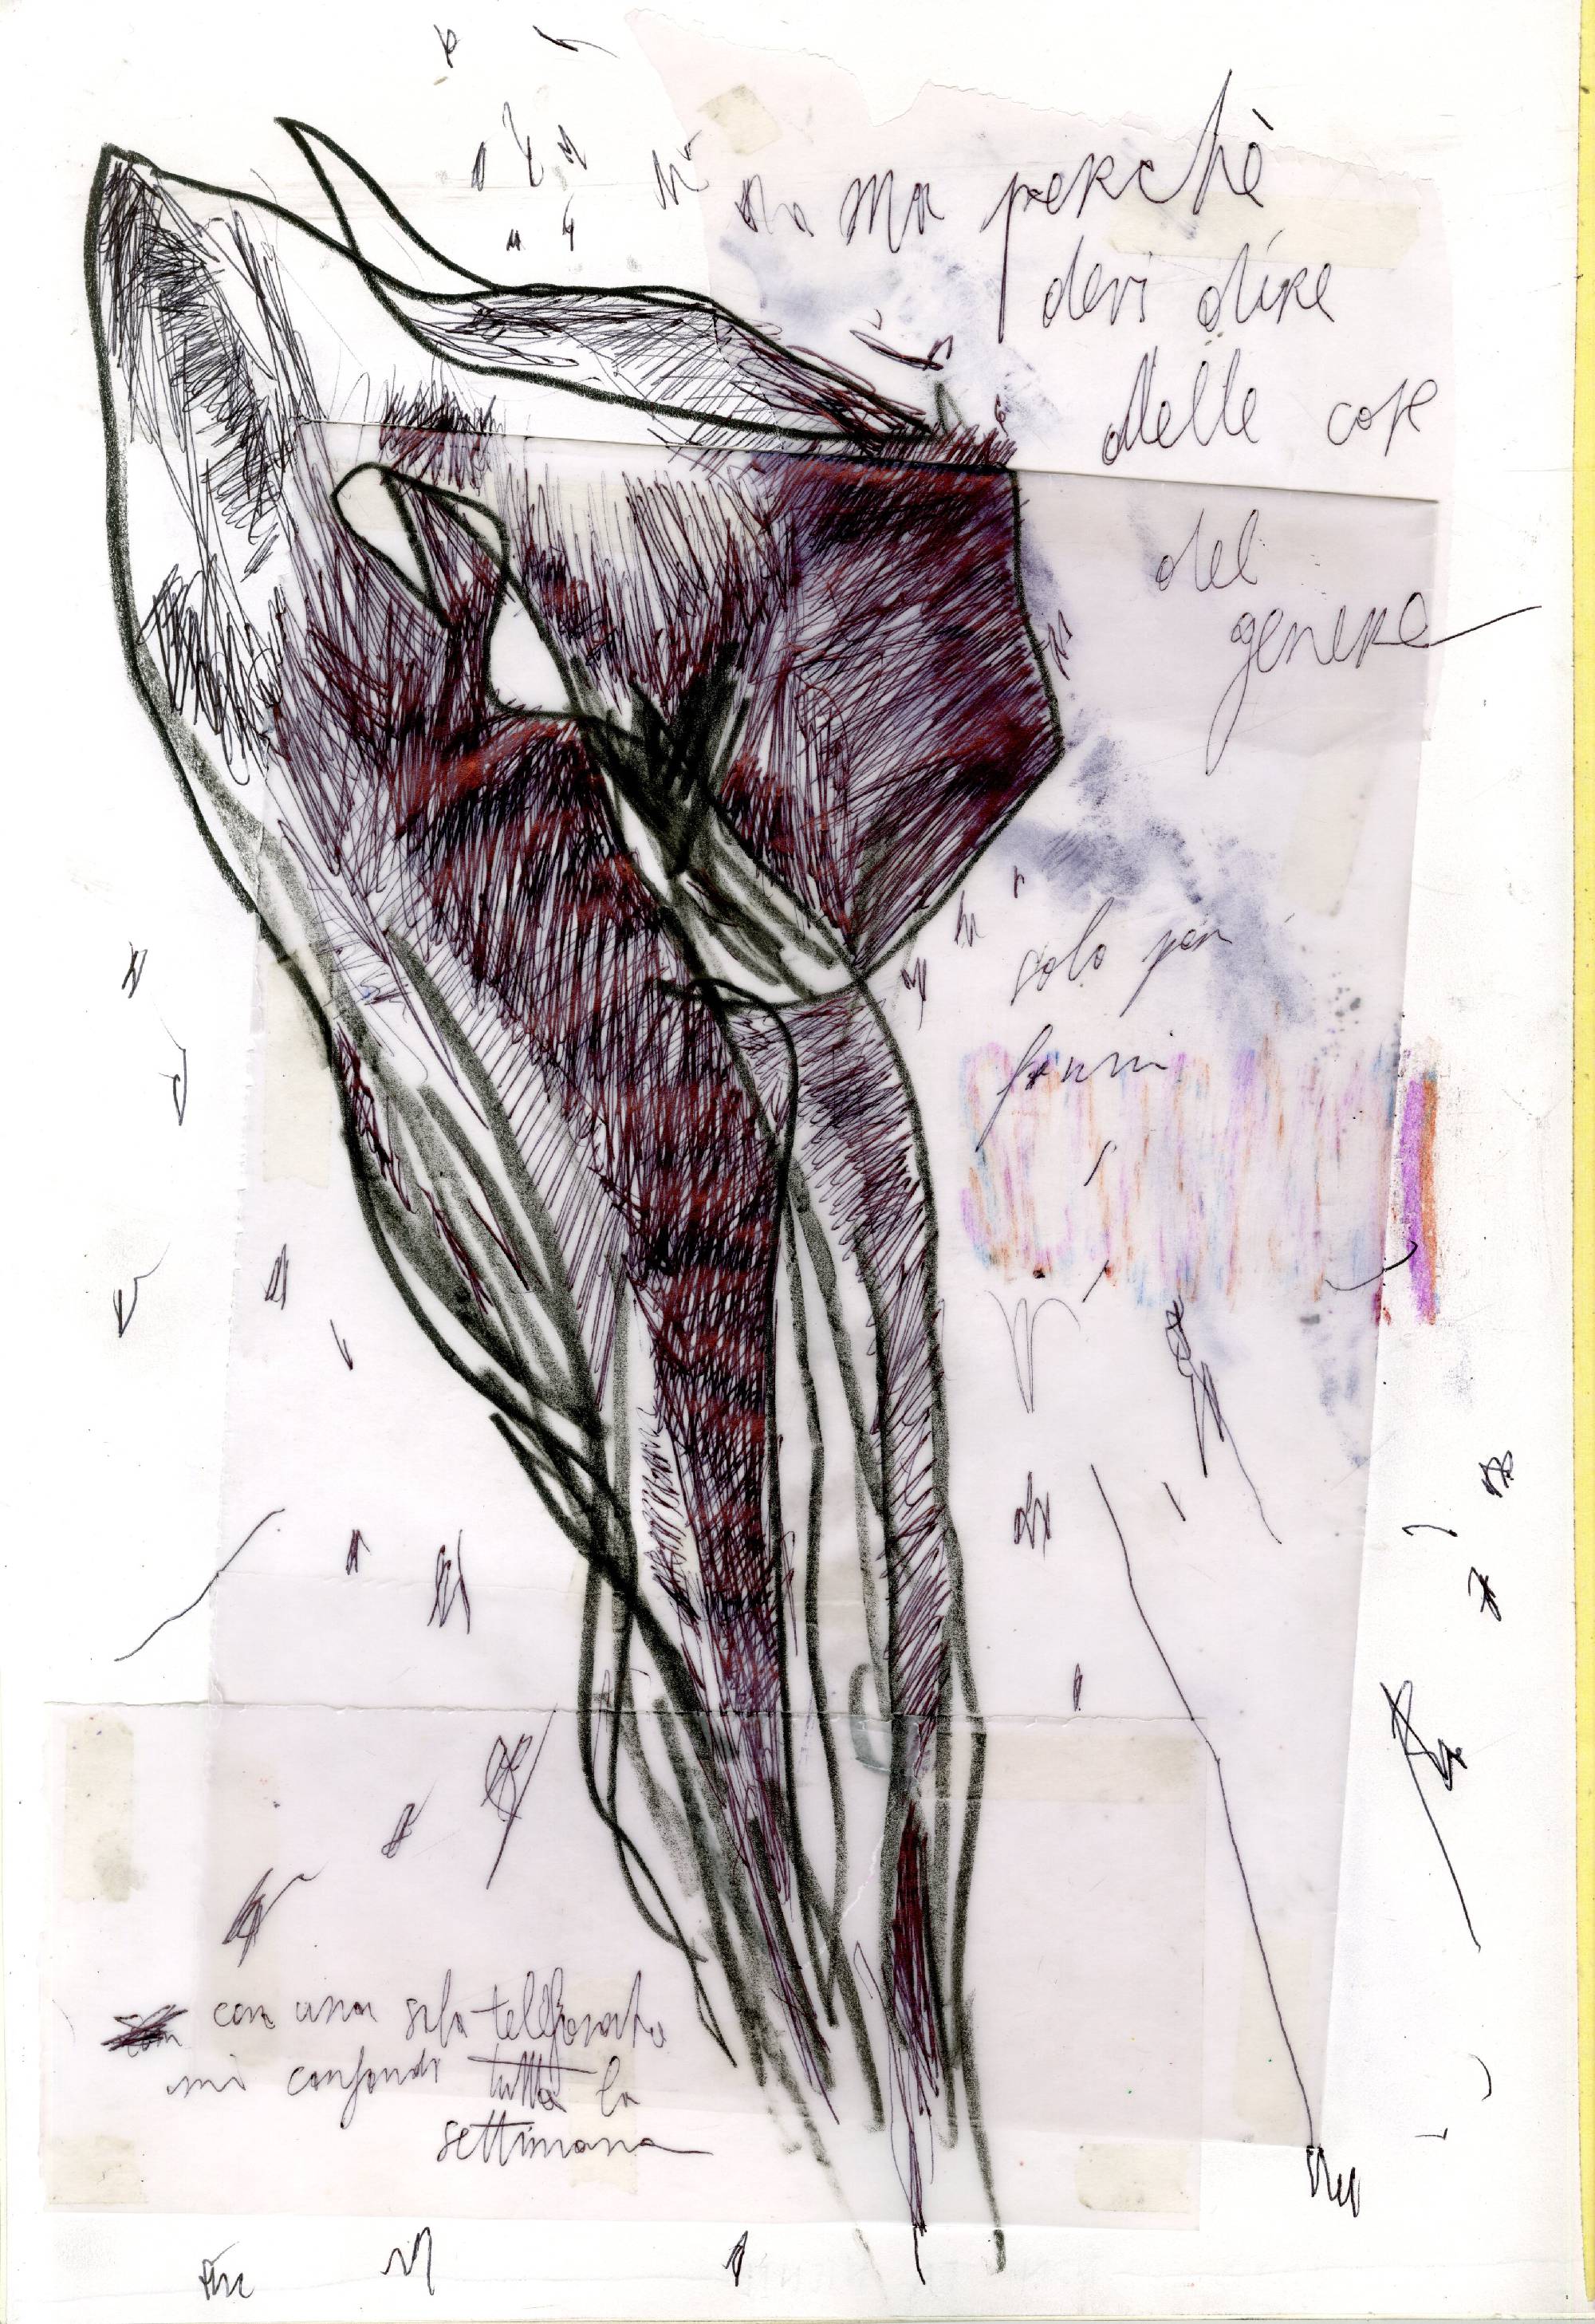 ma perchè
devi dire
delle cose
del
genere
solo per
farmi
con una sola telefonata
mi confondi tutta la
settimana